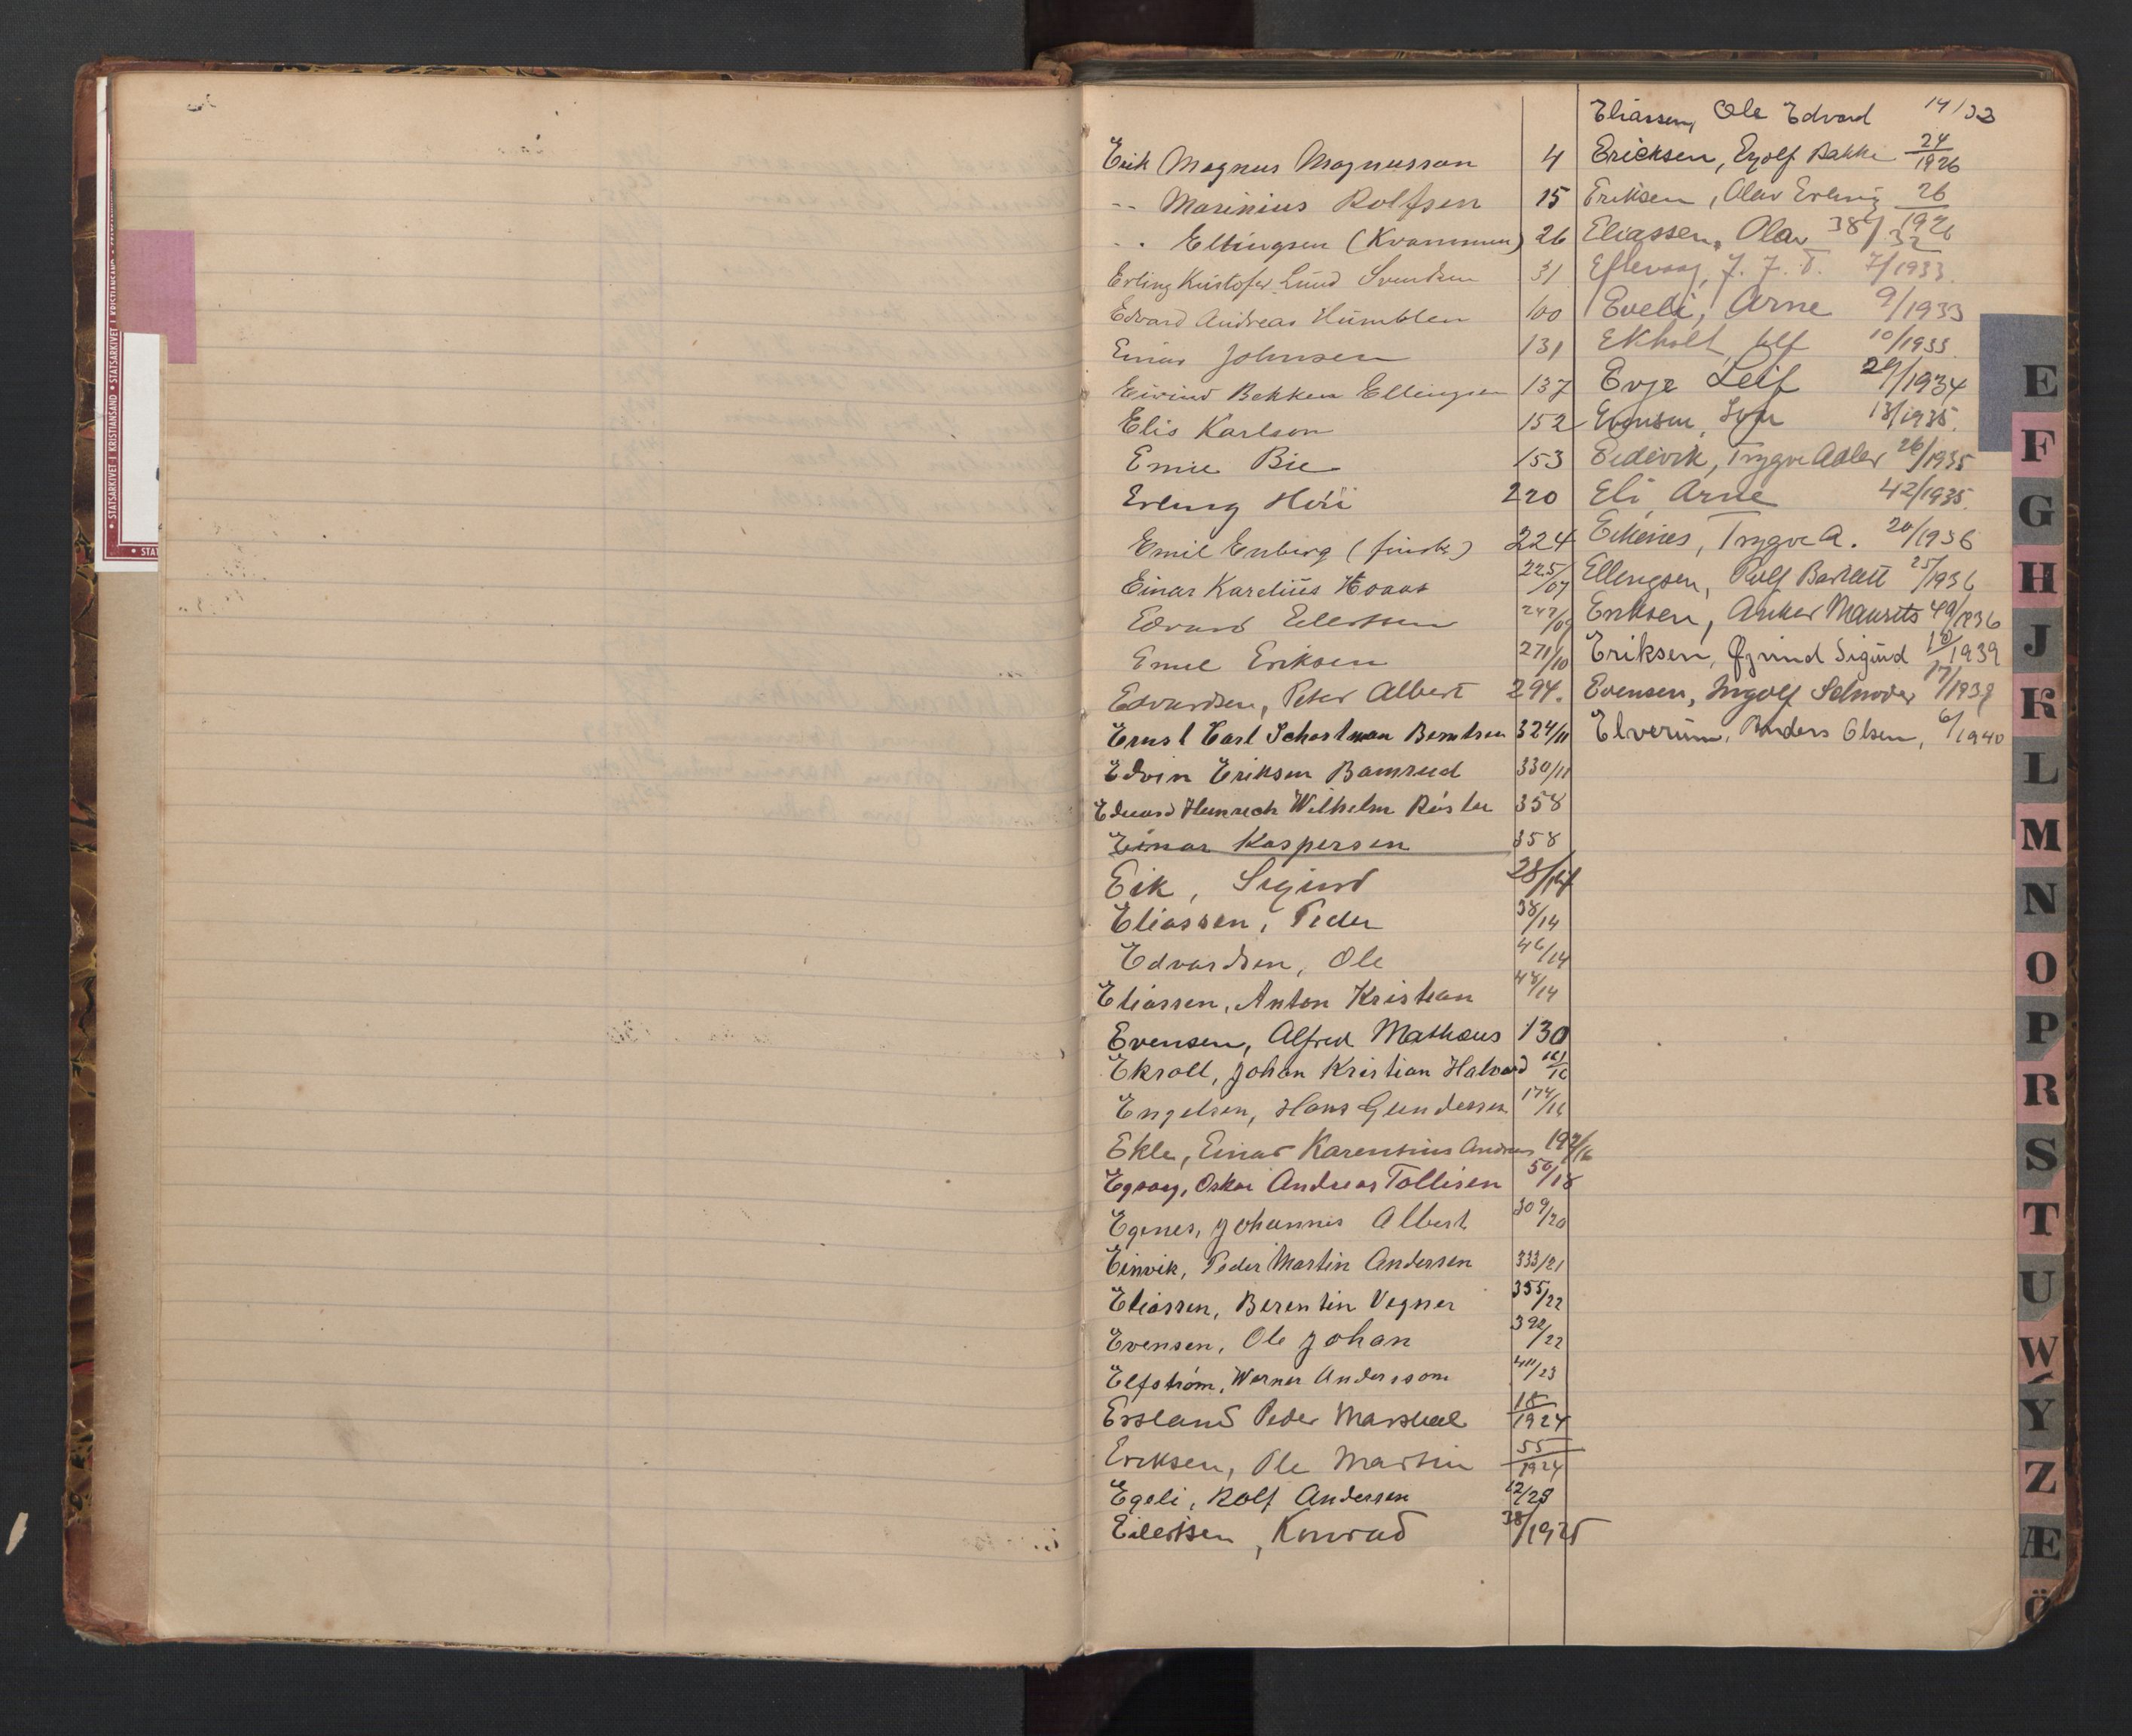 Erik Magnus Magnussan 4
-- Marinius Rolfsen 15
- . Ellingsen (Kvammen) 26
Erling Kristofer Lund Svendsen 31
Edvard Andreas Humblen 100
Einar Johnsen 131
Eivind Bekken Ellingsen 137
Elis Karlson 152
Emil Bie 153
Erling Höii 220
Emil Enberg (finsk) 224
Einar Karelius Hoaas 225/07
Edvard Eilertsen 247/09
Emil Eriksen 271/10
Edvardsen, Peter Albert 294.
Ernst Carl Schartman Berntsen 324/11
Edvin Eriksen Bamrud 330/11
Eduard Heinrich Wilhelm Röster 358
Einar Kaspersen 358
Eik, Sigurd 28/14
Eliassen, Peder 38/14
Edvardsen, Ole 46/14
Eliassen, Anton Kristian 48/14
Evensen, Alfred Mathæus 130
Ekroll, Johan Kristian Halvard 161/16
Engelsen, Hans Gundersen 174/16
Ekle, Einar Karensius Andreas 197/16
Egvaag, Oskar Andreas Tollisen 50/18
Egenes, Johannes Albert 309/20
Einvik, Peder Martin Andersen 333/21
Eliassen, Berentin Vegner 355/22
Evensen, Ole Johan 392/22
Elfström, Werner Andersson 411/23
Ersland Peder Marselel 18/1924
Eriksen, Ole Martin 55/1924
Egeli, Rolf Andersen 12/28
Eilertsen, Konrad 38/1925
Eliassen, Ole Edvard 14/33
Ericksen, Eyolf Bakke 24/1926
Eriksen, Olav Erling 26/1926
Eliassen, Olav 38/32
Eftevaag, J. J. T. 7/1933
Eveli, Arne 9/1933
Ekholt, Ulf 10/1933.
Evje Leif 29/1934
Evensen, Ivar 13/1935.
Eidevik, Trygve Adler 26/1935
Eli Arne 42/1935.
Eikenes, Trygve A. 20/1936
Ellingsen, Rolf Barlett 25/1936
Eriksen, Anker Maurits 49/1936
Eriksen, Øjvind Sigurd 10/1939
Evensen, Ingolf Schrøder 17/1939
Elverum, Anders Olsen, 6/1940
E
F
G
H
J
K
L
M
N
O
P
R
S
T
U
W
Y
Z
Æ
Ö
• STATSARKIVET I KRISTIANSAND • STATSARKIVET I KRISTIANSAND • STATSARKIVET
• STAT